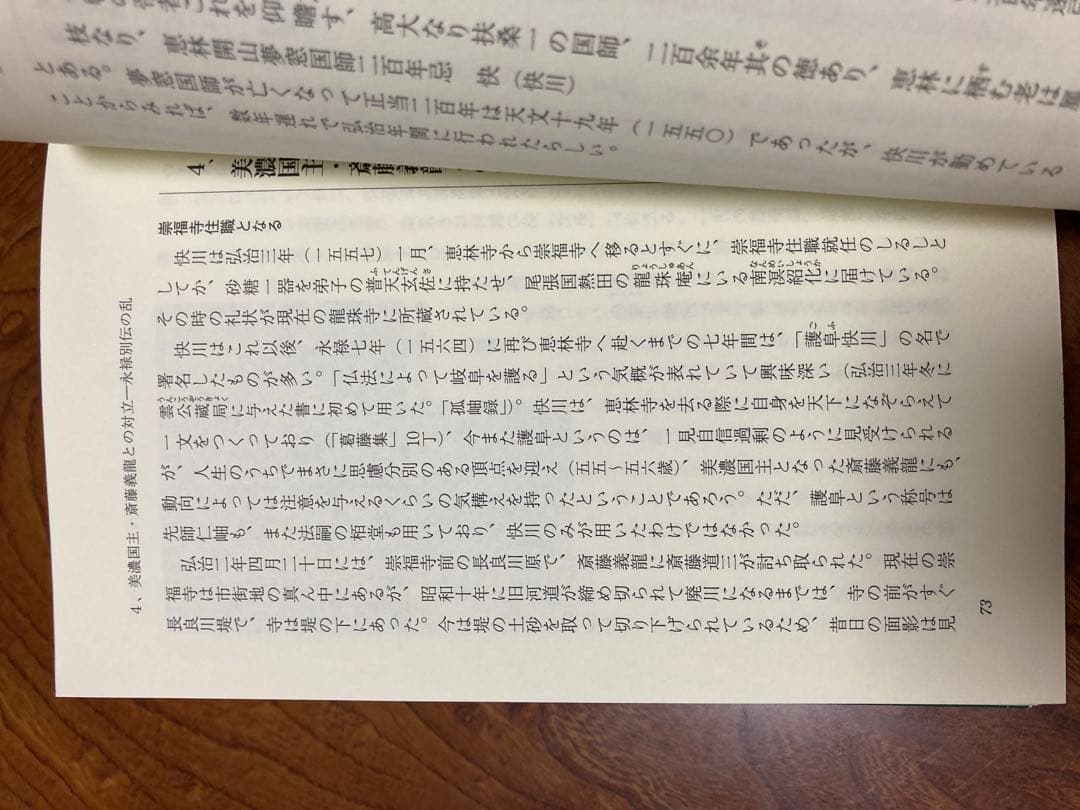 これを仰瞻す、高大なり扶桑一の国師、二百余年其の徳あり、恵林に栖む老は鳳
枝なり、恵林開山夢窓国師二百年忌 快(快川)
とある。夢窓国師が亡くなって正当二百年は天文十九年(一五五〇)であったが、快川が勤めている
ことからみれば、数年遅れて弘治年間に行われたらしい。
4、美濃国主・斎藤義龍
崇福寺住職となる
快川は弘治三年(一五五七)一月、恵林寺から崇福寺へ移るとすぐに、崇福寺住職就任のしるしと
してか、砂糖一器を弟子の普天玄佐に持たせ、尾張国熱田の龍珠庵にいる南溟紹化に届けている。
その時の礼状が現在の龍珠寺に所蔵されている。
快川はこれ以後、永禄七年(一五六四)に再び恵林寺へ赴くまでの七年間は、「護阜快川」の名で
署名したものが多い。「仏法によって岐阜を護る」という気概が表れていて興味深い(弘治三年冬に
雲公蔵局に与えた書に初めて用いた。「孤岫録」)。快川は、恵林寺を去る際に自身を天下になぞらえて
一文をつくっており(「葛藤集」10丁)、今また護阜というのは、一見自信過剰のように見受けられる
が、人生のうちでまさに思慮分別のある頂点を迎え(五五~五六歳)、美濃国主となった斎藤義龍にも、
動向によっては注意を与えるくらいの気構えを持ったということであろう。ただ、護阜という称号は
先師仁岫も、また法嗣の栢堂も用いており、快川のみが用いたわけではなかった。
弘治二年四月二十日には、崇福寺前の長良川原で、斎藤義龍に斎藤道三が討ち取られた。現在の崇
福寺は市街地の真ん中にあるが、昭和十年に旧河道が締め切られて廃川になるまでは、寺の前がすぐ
長良川堤で、寺は堤の下にあった。今は堤の土砂を取って切り下げられているため、昔日の面影は見
4、美濃国主・斎藤義龍との対立―永禄別伝の乱
73